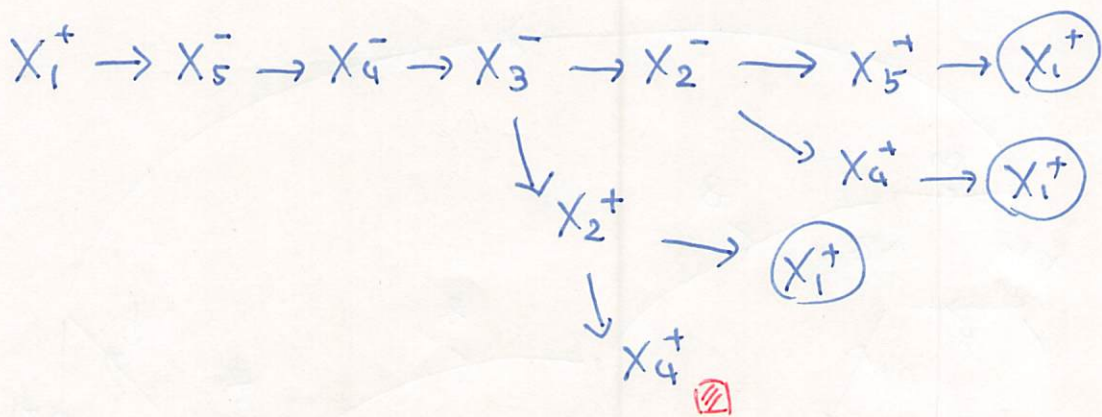 X₁⁺ → X₅⁻ → X₄⁻ → X₃⁻ → X₂⁻ → X₅⁺ → X₁⁺
X₄⁺ → X₁⁺
X₂⁺ → X₁⁺
X₄⁺